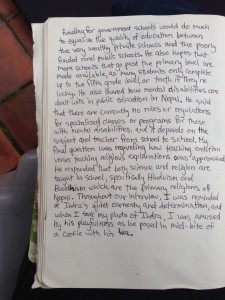 funding for government schools would do much
to equalize the quality of education between
the very wealthy private schools and the poorly
funded rural public schools. He also hopes that
more schools that go past the primary level are
made available, as many students only complete
up to the fifth grade level or tenth if they're
lucky. He also shared how mental disabilities are
dealt with in public education in Nepal. He said
that there are currently no rules or regulations
for specialized classes or programs for those
with mental disabilities, and it depends on the
subject and teacher from school to school. My
final question was regarding how teaching evolution
verses teaching religious explanations was approached.
He responded that both science and religion are
taught in school, specifically Hinduism and
Buddhism which are the primary religions of
Nepal. Throughout our interview, I was reminded
of Indra's quiet earnesty and determination, and
when I took my photo of Indra, I was amused
by his playfulness as he posed in mid-bite of
a cookie with his tea.